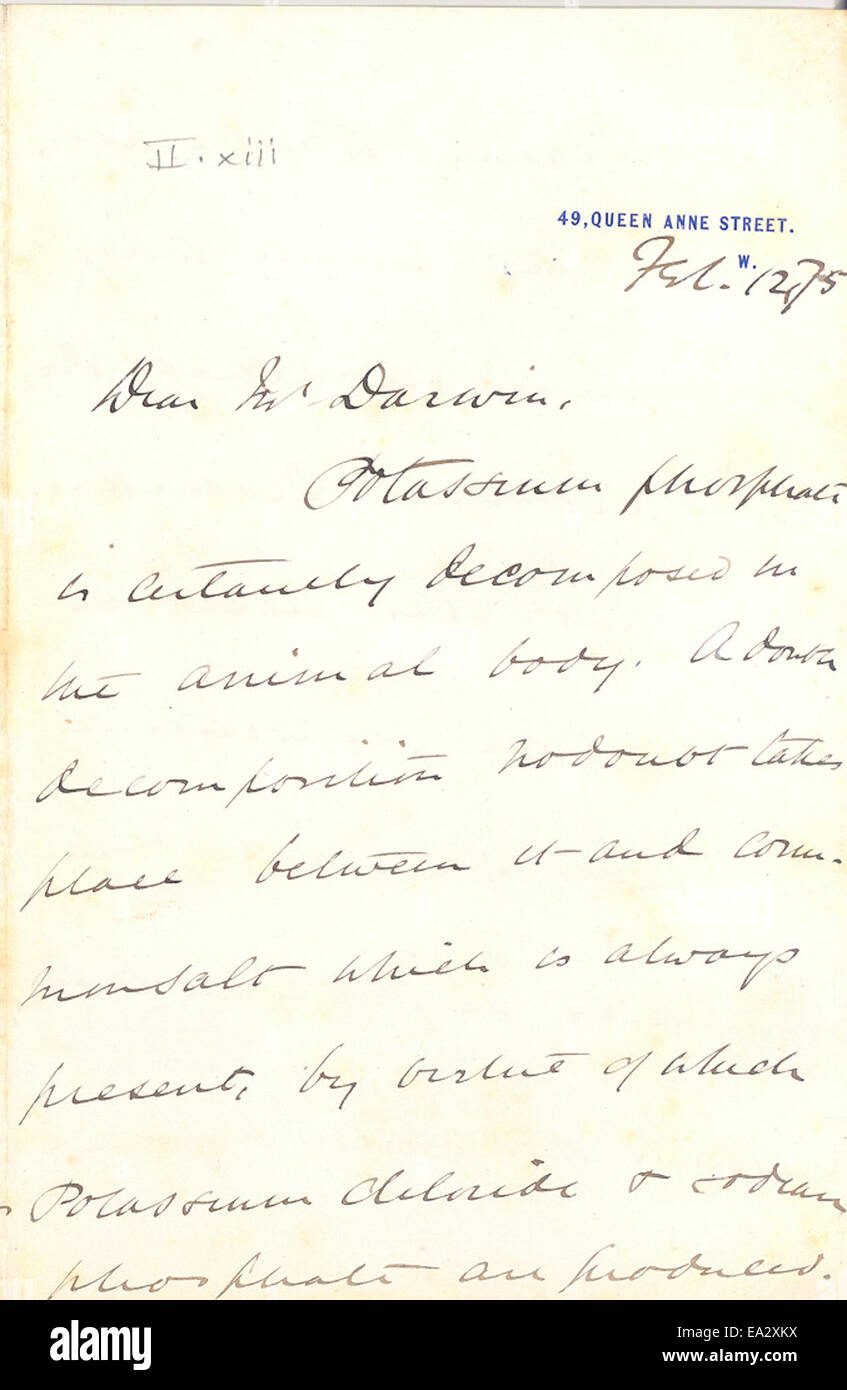 II. xiii
49, QUEEN ANNE STREET.
W.
Feb. 12/75
Dear Mr Darwin,
Potassium phosphate
is certainly decomposed in
the animal body. A double
decomposition no doubt takes
place between it and com-
mon salt which is always
present, by virtue of which
Potassium chloride & sodium
phosphate are produced.
a alamy stock photo
EA2XKX
www.alamy.com